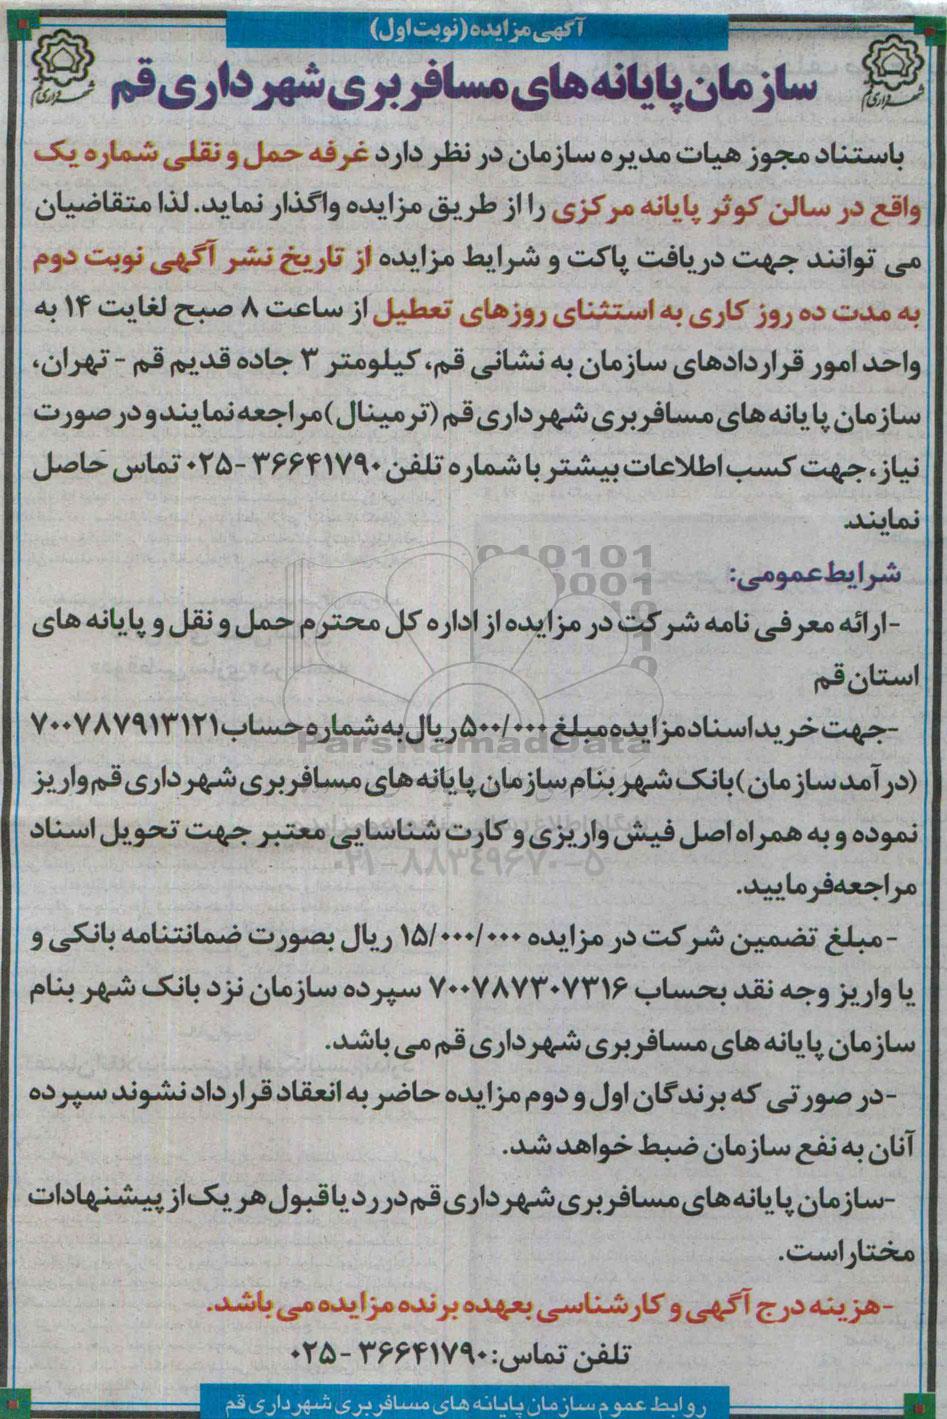 آگهی مزایده (نوبت اول)
سازمان پایانه های مسافربری شهرداری قم
باستناد مجوز هیات مدیره سازمان در نظر دارد غرفه حمل و نقلی شماره یک
واقع در سالن کوثر پایانه مرکزی را از طریق مزایده واگذار نماید. لذا متقاضیان
می توانند جهت دریافت پاکت و شرایط مزایده از تاریخ نشر آگهی نوبت دوم
به مدت ده روز کاری به استثنای روزهای تعطیل از ساعت ۸ صبح لغایت ۱۴ به
واحد امور قراردادهای سازمان به نشانی قم، کیلومتر ۳ جاده قدیم قم - تهران،
سازمان پایانه های مسافربری شهرداری قم (ترمینال) مراجعه نمایند و در صورت
نیاز، جهت کسب اطلاعات بیشتر با شماره تلفن ۳۶۶۴۱۷۹۰ -۰۲۵ تماس حاصل
نمایند.
شرایط عمومی:
-ارائه معرفی نامه شرکت در مزایده از اداره کل محترم حمل و نقل و پایانه های
استان قم
-جهت خرید اسناد مزایده مبلغ ۵۰۰/۰۰۰ ریال به شماره حساب ۷۰۰۷۸۷۹۱۳۱۲۱
(درآمد سازمان) بانک شهر بنام سازمان پایانه های مسافربری شهرداری قم واریز
نموده و به همراه اصل فیش واریزی و کارت شناسایی معتبر جهت تحویل اسناد
مراجعه فرمایید.
-مبلغ تضمین شرکت در مزایده ۱۵/۰۰۰/۰۰۰ ریال بصورت ضمانتنامه بانکی و
یا واریز وجه نقد بحساب ۷۰۰۷۸۷۳۰۷۳۱۶ سپرده سازمان نزد بانک شهر بنام
سازمان پایانه های مسافربری شهرداری قم می باشد.
-در صورتی که برندگان اول و دوم مزایده حاضر به انعقاد قرارداد نشوند سپرده
آنان به نفع سازمان ضبط خواهد شد.
-سازمان پایانه های مسافربری شهرداری قم در رد یا قبول هر یک از پیشنهادات
مختار است.
-هزینه درج آگهی و کارشناسی بعهده برنده مزایده می باشد.
تلفن تماس: ۳۶۶۴۱۷۹۰ -۰۲۵
روابط عموم سازمان پایانه های مسافربری شهرداری قم
شهرداری قم
شهرداری قم
ParsNamadData